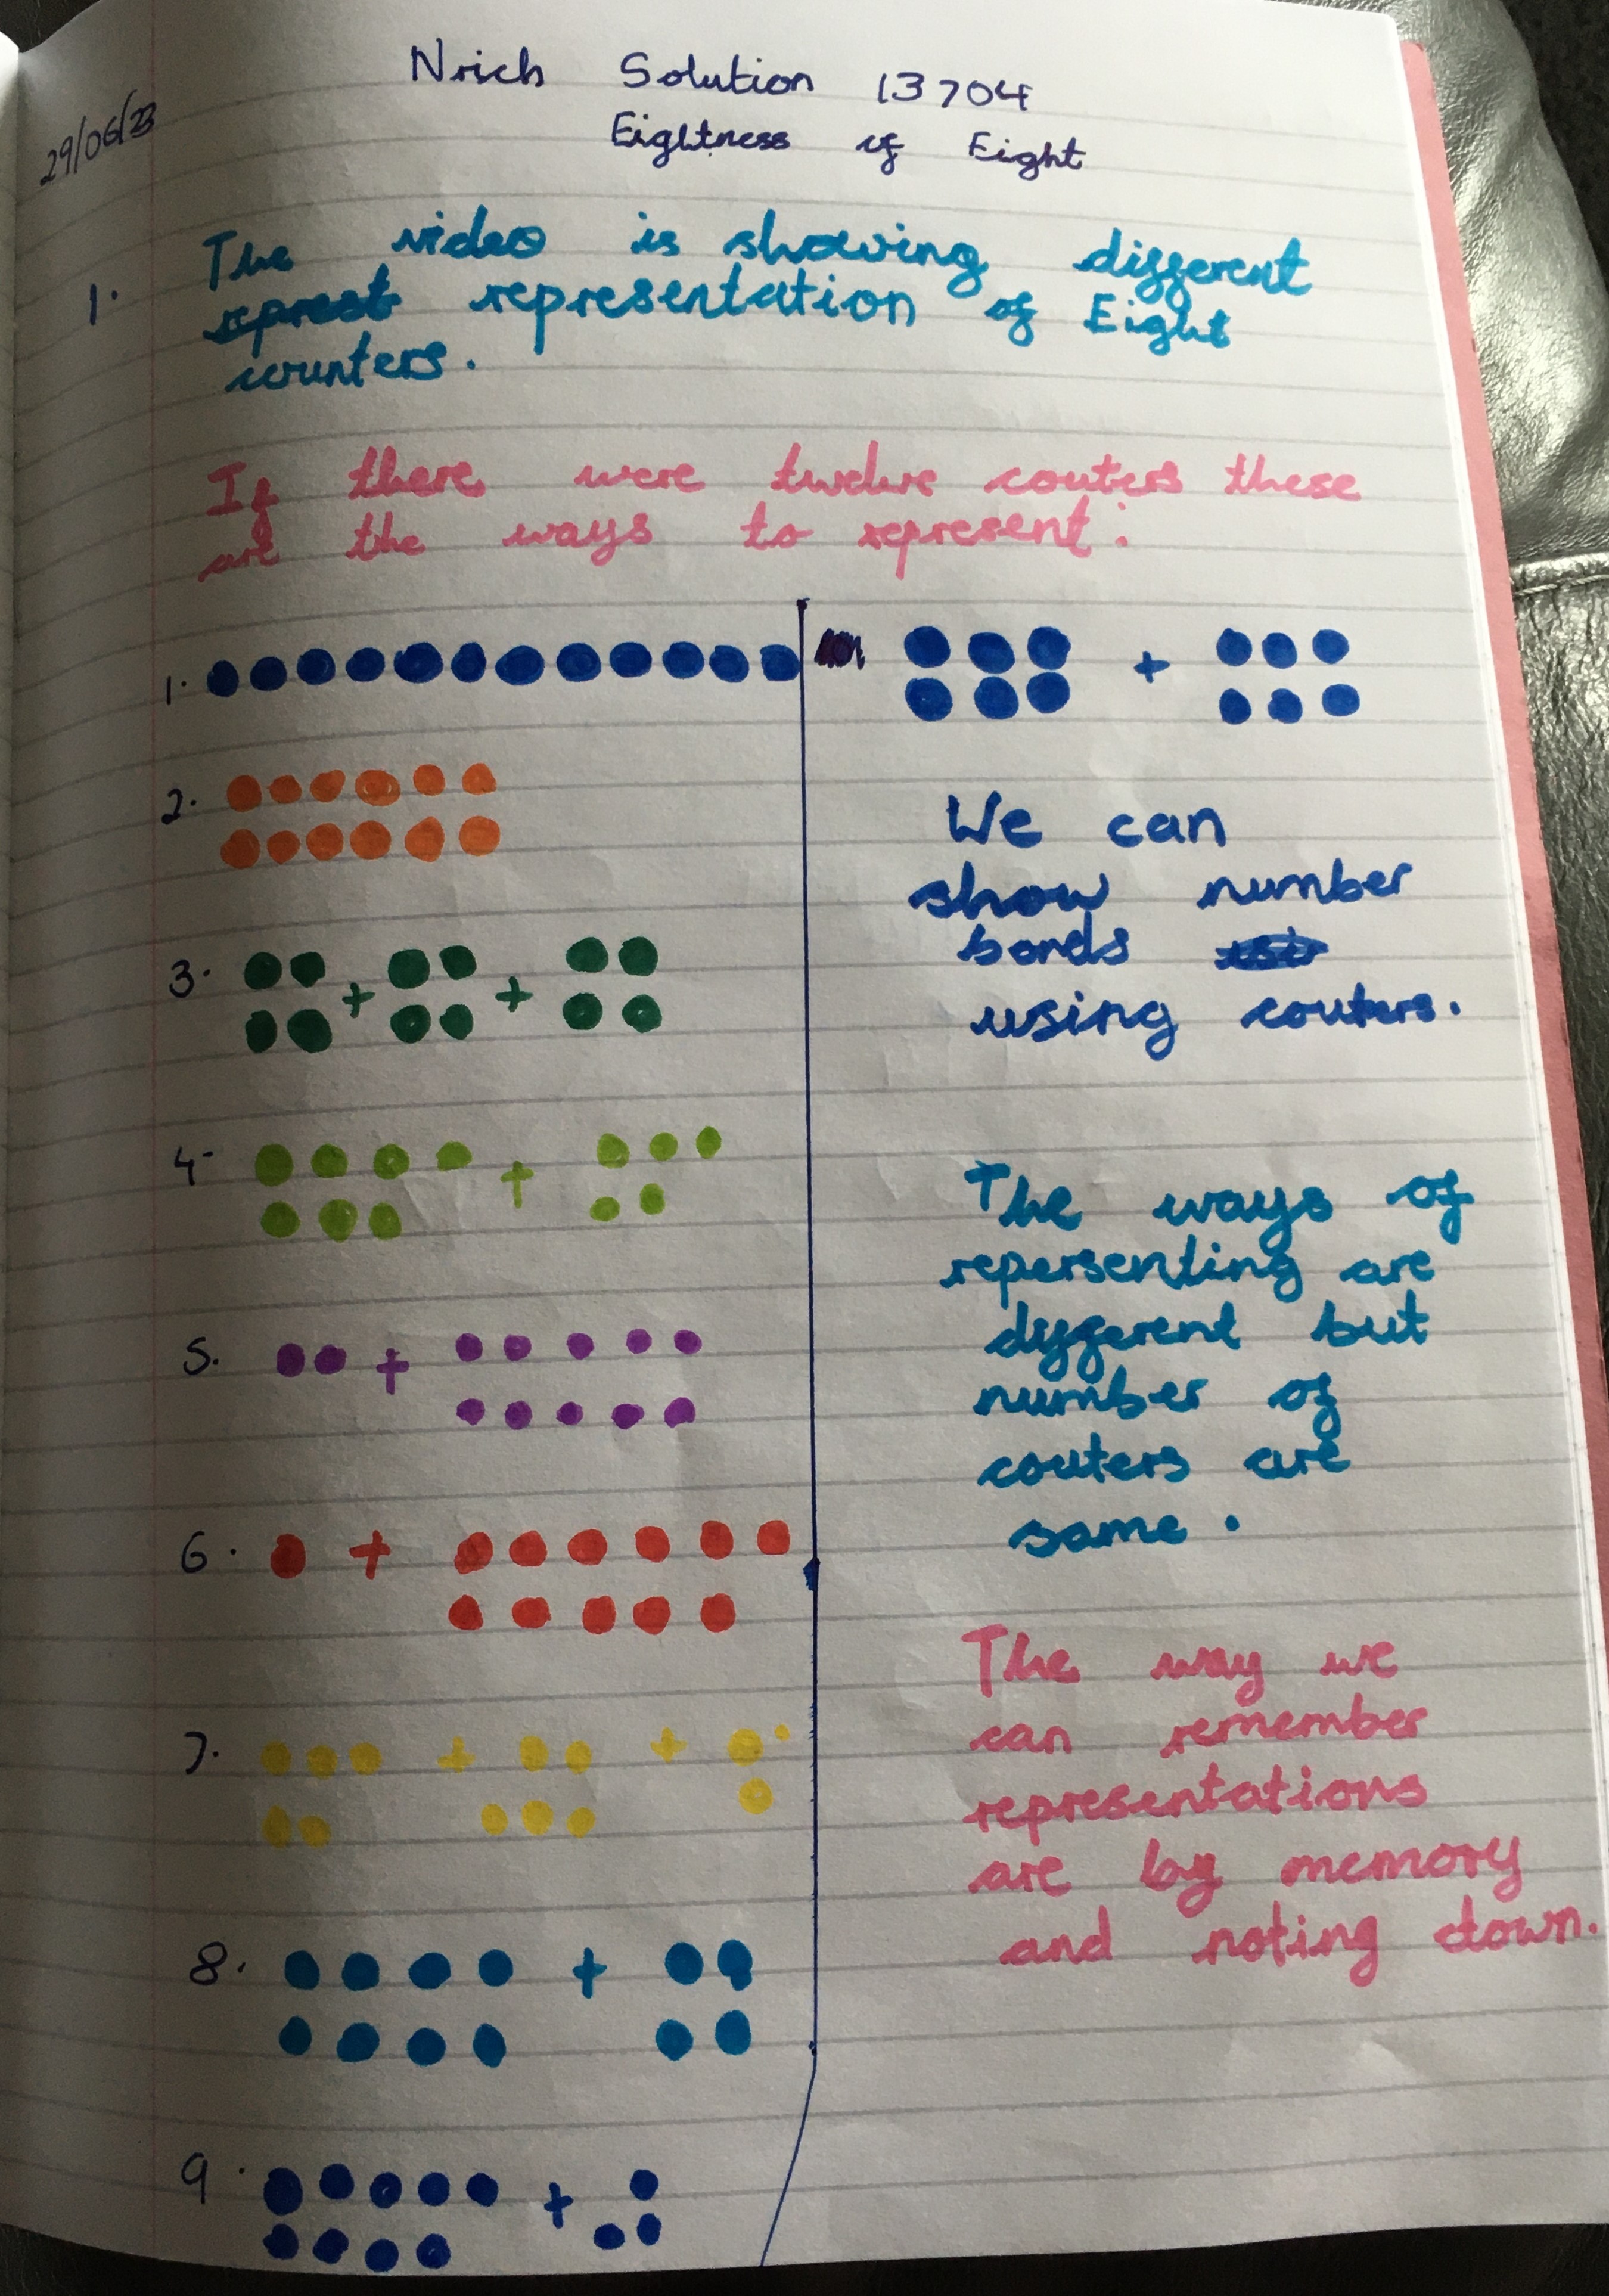 Nrich Solution 13704
29/06/23
Eightness of Eight
1. The video is showing different
representation of Eight
counters.
If there were twelve couters these
are the ways to represent:
1.
+
2.
3. + +
4- +
5. +
6. +
7. + +
8. +
9. +
We can
show number
bonds
using couters.
The ways of
repersenting are
different but
number of
couters are
same.
The way we
can remember
representations
are by memory
and noting down.